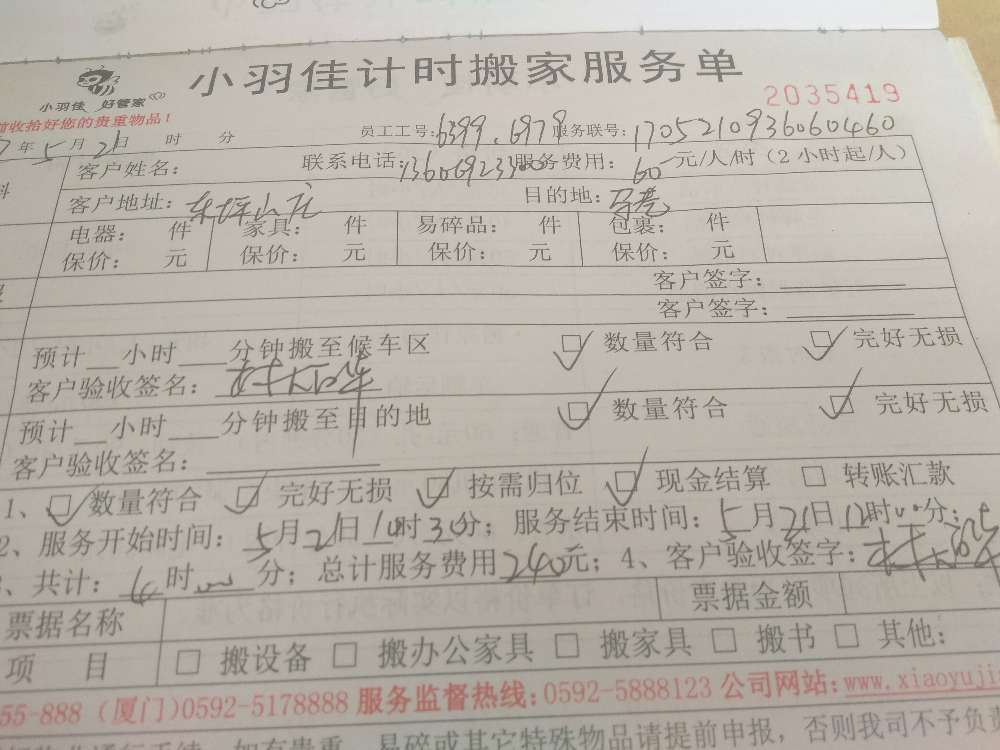 小羽佳计时搬家服务单
小羽佳 好管家
2035419
前收拾好您的贵重物品！
7年5月21日 时 分 员工工号:6399.6979 服务联号:170521093606060460
客户姓名: 联系电话: 服务费用:60元/人/时（2小时起/人）
客户地址:东坪山庄 目的地:
电器: 件 家具: 件 易碎品: 件 包裹: 件
保价: 元 保价: 元 保价: 元 保价: 元
客户签字:
客户签字:
预计__小时___分钟搬至候车区 ☑ 数量符合 ☑ 完好无损
客户验收签名:
预计__小时___分钟搬至目的地 ☑ 数量符合 ☑ 完好无损
客户验收签名:
1、☑ 数量符合 ☑ 完好无损 ☑ 按需归位 ☑ 现金结算 □ 转账汇款
2、服务开始时间:5月21日10时30分；服务结束时间:5月21日12时00分；
3、共计: 时 分；总计服务费用240元；4、客户验收签字:
票据名称 票据金额
项 目 □ 搬设备 □ 搬办公家具 □ 搬家具 □ 搬书 □ 其他:
55-888（厦门)0592-5178888 服务监督热线:0592-5888123 公司网站:www.xiaoyuji
如有贵重、易碎或其它特殊物品请提前申报，否则我司不予负责